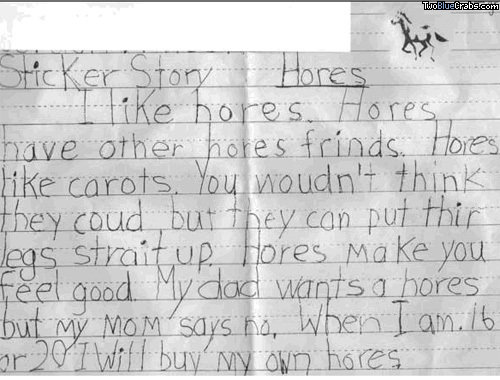 TwoBlueCrabs.com
Sticker Story Hores
I like hores. Hores
have other hores frinds. Hores
like carots. You woudn't think
they coud, but they can put thir
legs strait up. Hores make you
feel good. My dad wants a hores
but my mom says no. When I am. 16
or 20 I will buy my own hores